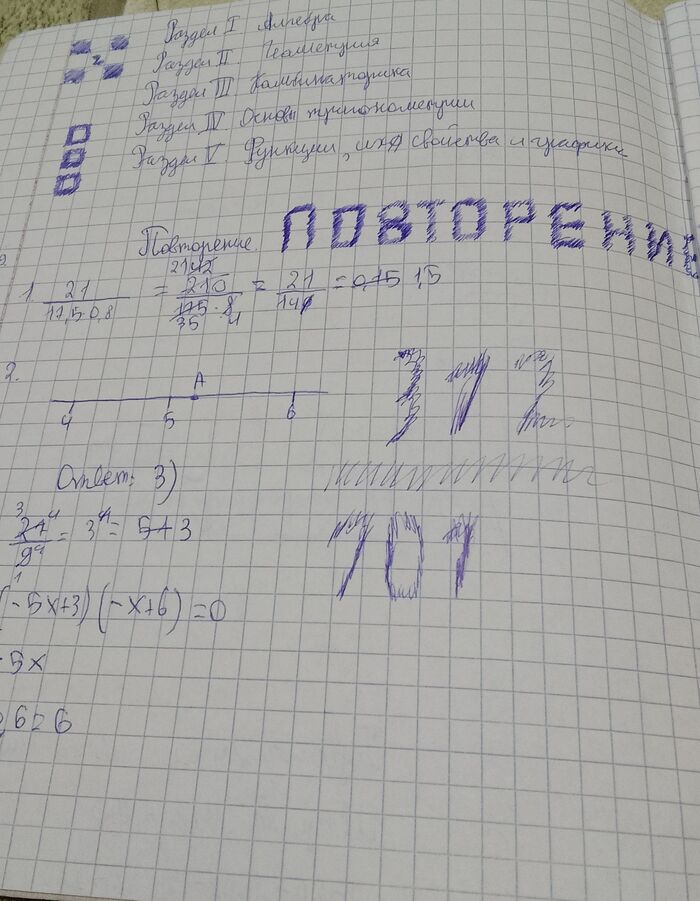 Раздел I. Алгебра
Раздел II. Геометрия
Раздел III Комбинаторика
Раздел IV. Основы тригонометрии
Раздел V. Функции, их свойства и графики
Повторение. ПОВТОРЕНИ
1 21 / 17,5·0,8 = 210 / 175·8 = 21 / 14 = 0,15 1,5
2.
A
4 5 6
Ответ: 3)
372
= 3⁴ =
701
(-5x+3)(-x+6)=0
-5x
6